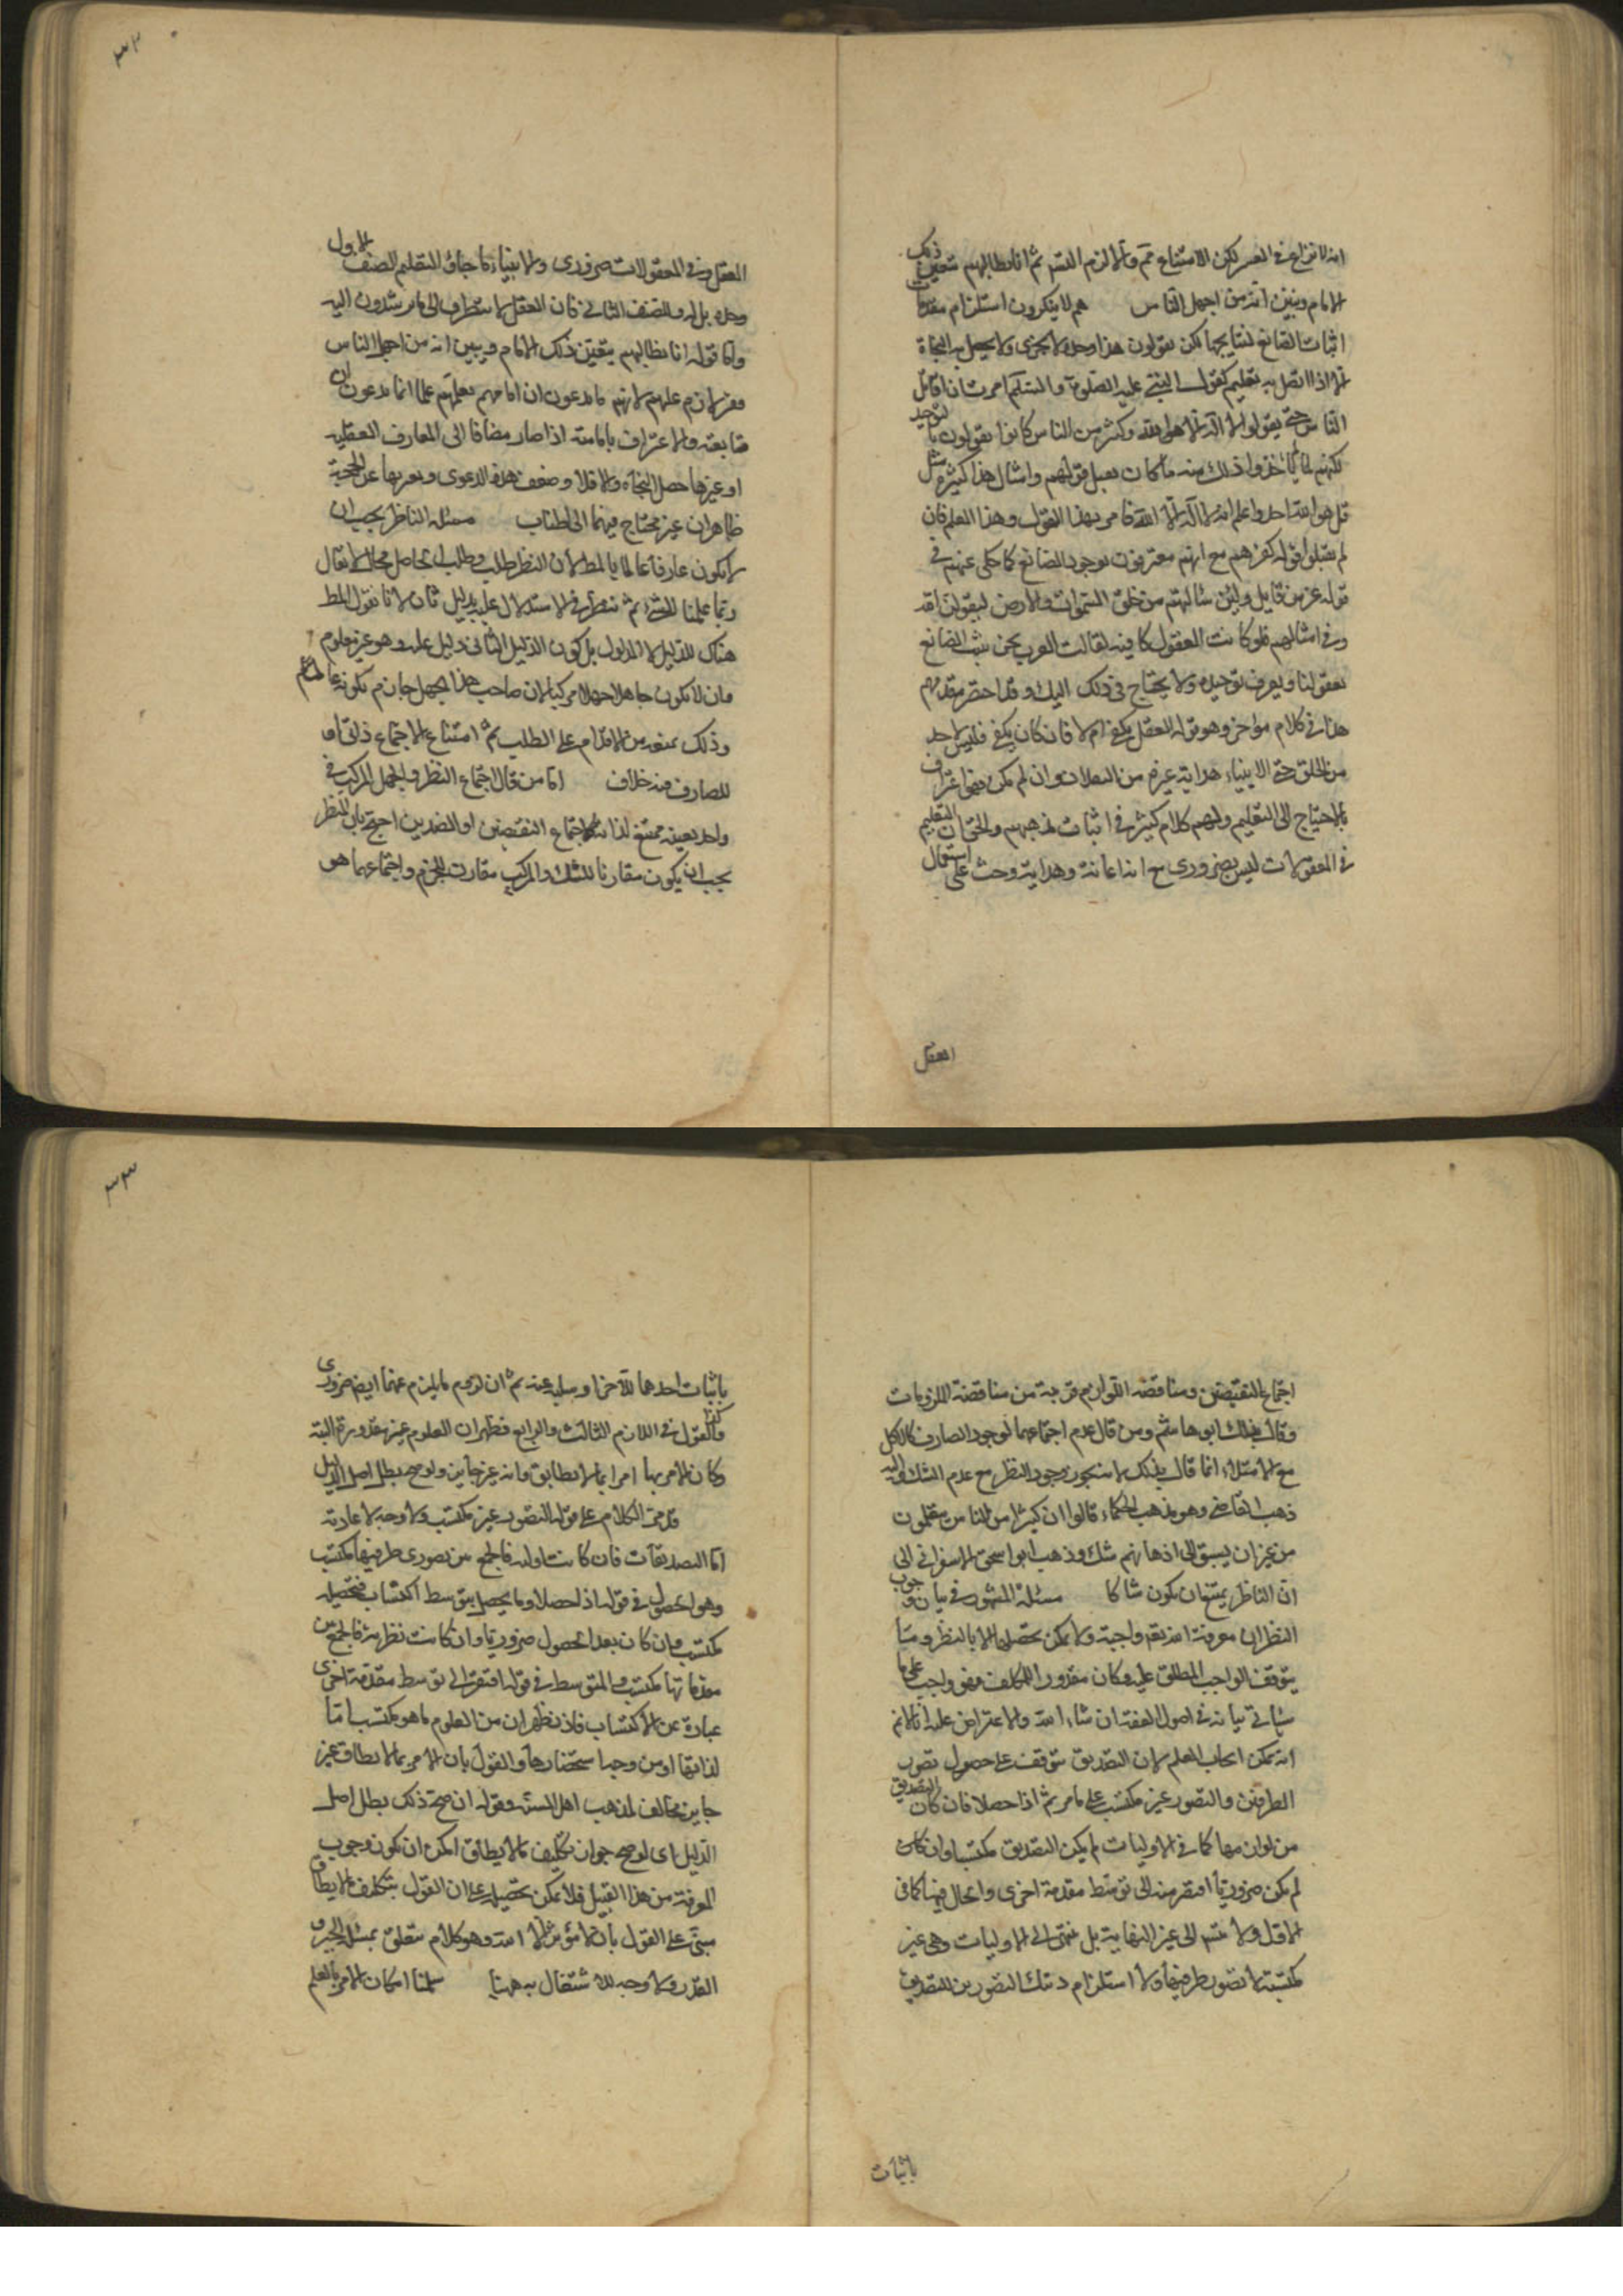 انه لا نزاع في العسر لكن الامتناع تم والا لزم التسلسل ثم انا نطالبهم بتعيين ذلك
الامام ونبين انه من اجهل الناس هم لا ينكرون استلزام مقدمات
اثبات الصانع لنتايجها لكن يقولون هذا وحده لا يجزى ولا يحصل به النجاة
الا اذا اتصل به تعليم كقول النبي عليه الصلوة والسلام امرت ان اقاتل
الناس حتى يقولوا لا اله الا الله وكثير من الناس كانوا يقولون بالتوحيد
لكنهم لما لم ياخذوا ذلك منه ما كان يقبل قولهم وامثال هذا كثيرة مثل
قل هو الله احد واعلم انه لا اله الا الله فامر بهذا القول وهذا العلم فان
لم يقبلوا قوله كفرهم مع انهم معترفون بوجود الصانع كما حكى عنهم في
قوله عز من قايل ولئن سالتهم من خلق السموات والارض ليقولن الله
وفي امثالهم فلو كانت العقول كافية لقالت العرب نحن نثبت الصانع
بعقولنا ونعرف توحيده ولا نحتاج في ذلك اليك وقد احتصر مقدمهم
هذا في كلام موجز وهو قوله العقل يكفي ام لا فان كان يكفي فليس لاحد
من الخلق حتى الانبياء هداية غيره من العقلاء وان لم يكن فهو اعتراف
بالاحتياج الى التعليم ولهم كلام كثير في اثبات مذهبهم والحق ان التعليم
في المعقولات ليس بضروري مع انه اعانة وهداية وحث على استعمال
العقل
٣٢
العقل وفي المعقولات ضروري والانبياء ما جاؤ لتعليم الصنف الاول
وحده بل له وللصنف الثاني فان العقل لا يتطرق الى ما يرشدون اليه
واما قوله انا نطالبهم بتعيين ذلك الامام ونبين انه من اجهل الناس
فغير لازم عليهم لانهم ما يدعون ان امامهم يعلمهم علما انما يدعون ان
متابعته والاعتراف بامامته اذا صار مضافا الى المعارف العقلية
او غيرها حصل النجاة والا فلا وضعف هذه الدعوى وتعريها عن الحجة
ظاهران غير محتاج فيهما الى اطناب مسئلة الناظر يجب ان
لا يكون عارفا عالما بالمط لان النظر طلب وطلب الحاصل محال لا يقال
ربما علمنا الشئ ثم ننظر في الاستدلال عليه بدليل ثان لانا نقول المط
هناك للدليل لا المدلول بل كون الدليل الثاني دليل عليه وهو غير معلوم
وان لا يكون جاهلا جهلا مركبا لان صاحب هذا الجهل جازم بكونه عالما
وذلك يمنعه من الاقدام على الطلب ثم امتناع الاجتماع ذاتي او
للصارف فيه خلاف اما من قال اجتماع النظر والجهل المركب في
واحد بعينه ممتنع لذاته كاجتماع النقيضين او الضدين احتج بان النظر
يجب ان يكون مقارنا للشك والمركب مقارن للجزم واجتماعهما هو
اجتماع النقيضين ومناقضة اللوازم قريبة من مناقضة الملزومات
وقال بذلك ابو هاشم ومن قال عدم اجتماعهما لوجود الصارف كالاكل
مع الامتلاء انما قال بذلك لانه يجوز وجود النظر مع عدم الشك واليه
ذهب القاضي وهو مذهب الحكماء قالوا ان كثيرا من الناس يتعلمون
من غير ان يسبق الى اذهانهم شك وذهب ابو اسحق الاسفراني الى
ان الناظر يمتنع ان يكون شاكا مسئلة المشهور في بيان وجوب
النظر ان معرفة الله تعم واجبة ولا يمكن تحصيلها الا بالنظر وما
يتوقف الواجب المطلق عليه وكان مقدورا للمكلف فهو واجب على ما
سياتي بيانه في اصول الفقه ان شاء الله والاعتراض عليه انا لا نم
انه يمكن ايجاب العلم لان التصديق يتوقف على حصول تصور
الطرفين والتصور غير مكتسب على ما مر ثم اذا حصلا فان كان التصديق
من لوازمهما كما في الاوليات لم يكن التصديق مكتسبا وان كان
لم يكن ضروريا افتقر فيه الى توسط مقدمة اخرى والحال فيها كما في
الاول ولا يتسلسل الى غير النهاية بل ينتهي الى الاوليات وهي غير
مكتسبة لا تصور طرفيها ولا استلزام ذينك التصورين للتصديق
باثبات
٣٣
باثبات احدهما للآخر او سلبه عنه ثم ان لزوم ما يلزم عنهما ايضا ضروري
وكذا القول في اللازم الثالث والرابع فظهر ان العلوم غير مقدورة البتة
وكان الامر بها امرا بما لا يطابق وانه غير جايز ولو صح بطل اصل الدليل
قد مر الكلام على قوله التصور غير مكتسب ولا وجه لاعادته
اما التصديقات فان كانت اولية فالجمع بين تصوري طرفيها مكتسب
وهو الحصول في قوله اذا حصلا وما يحصل بتوسط اكتساب فتحصيله
مكتسب وان كان بعد الحصول ضروريا وان كانت نظرية فالجمع بين
مقدماتها مكتسب والمتوسط في قوله افتقر الى توسط مقدمة اخرى
عبارة عن الاكتساب فاذن ظهر ان من العلوم ما هو مكتسب اما
لذاتها او من وجب استحضارها والقول بان الامر بما لا يطاق غير
جايز مخالف لمذهب اهل السنة وقوله ان صح ذلك بطل اصل
الدليل اي لو صح جواز تكليف ما لا يطاق امكن ان يكون وجوب
المعرفة من هذا القبيل فلا يمكن تحصيله على ان القول بتكليف ما لا يطاق
مبنى على القول بان لا مؤثر الا الله وهو كلام متعلق بمسئلة الجبر و
القدر ولا وجه للاشتغال به ههنا سلمنا امكان الامر بالعلم